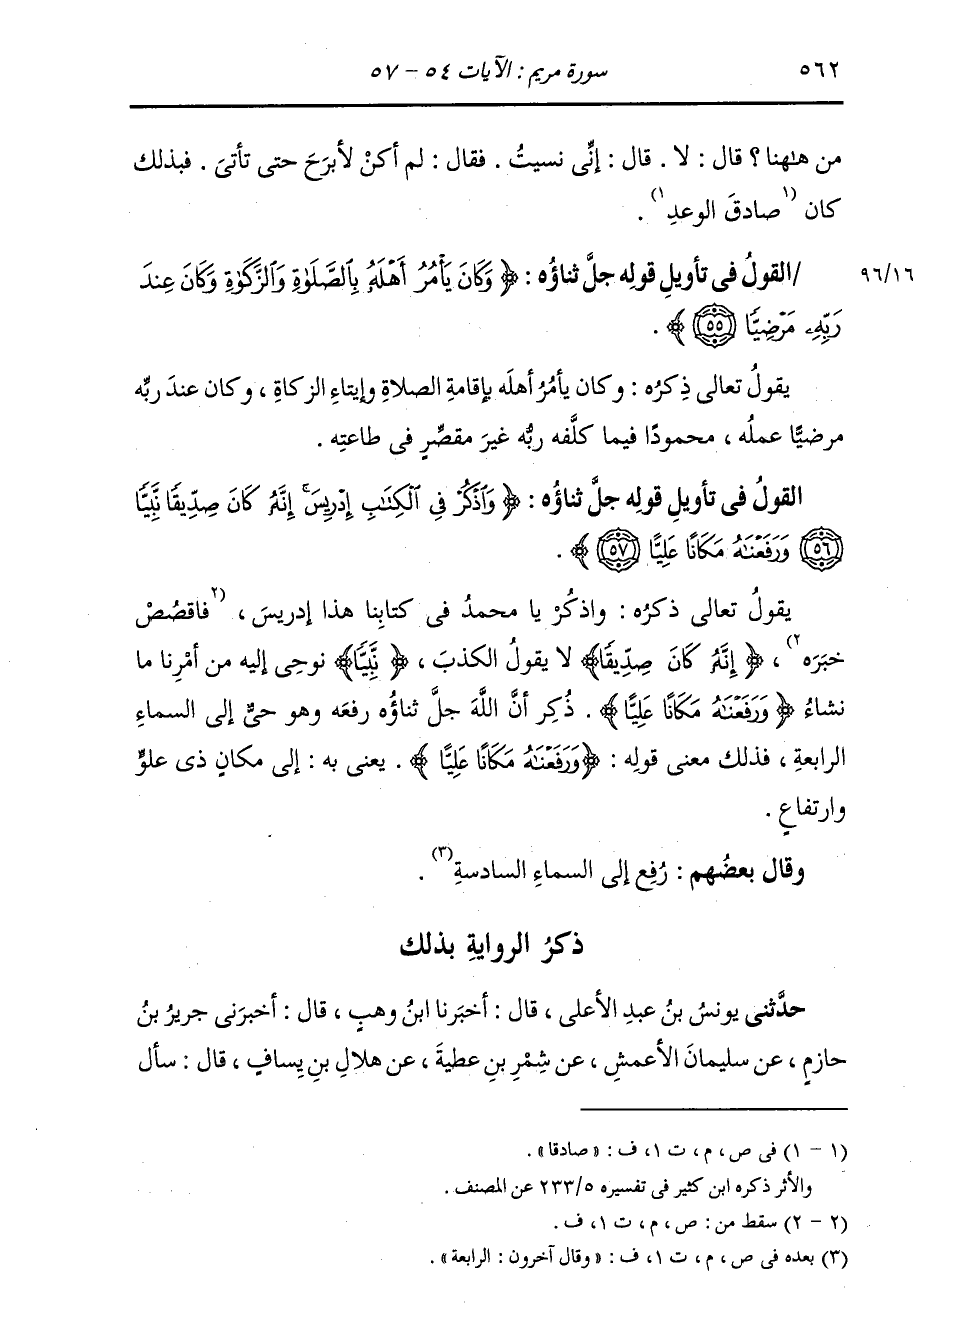 ٥٦٢ سورة مريم : الآيات ٥٤ – ٥٧
من هٰهنا ؟ قال : لا . قال : إنِّى نسيتُ . فقال : لم أكنْ لأبرَحَ حتى تأتىَ . فبذلك
كان ⁽¹صادقَ الوعدِ¹⁾ .
٩٦/١٦ /القولُ فى تأويلِ قولِه جلَّ ثناؤُه : ﴿ وَكَانَ يَأْمُرُ أَهْلَهُۥ بِٱلصَّلَوٰةِ وَٱلزَّكَوٰةِ وَكَانَ عِندَ
رَبِّهِۦ مَرْضِيًّا ٥٥ ﴾ .
يقولُ تعالى ذِكرُه : وكان يأمُرُ أهلَه بإقامةِ الصلاةِ وإيتاءِ الزكاةِ ، وكان عندَ ربِّه
مرضيًّا عملُه ، محمودًا فيما كلَّفه ربُّه غيرَ مقصِّرٍ فى طاعتِه .
القولُ فى تأويلِ قولِه جلَّ ثناؤُه : ﴿ وَٱذْكُرْ فِى ٱلْكِتَٰبِ إِدْرِيسَ ۚ إِنَّهُۥ كَانَ صِدِّيقًا نَّبِيًّا
٥٦ وَرَفَعْنَٰهُ مَكَانًا عَلِيًّا ٥٧ ﴾ .
يقولُ تعالى ذكرُه : واذكُرْ يا محمدُ فى كتابِنا هذا إدريسَ ، ⁽²فاقصُصْ
خبَرَه²⁾ ، ﴿ إِنَّهُۥ كَانَ صِدِّيقًا﴾ لا يقولُ الكذبَ ، ﴿ نَّبِيًّا﴾ نوحِى إليه من أمْرِنا ما
نشاءُ ﴿ وَرَفَعْنَٰهُ مَكَانًا عَلِيًّا ﴾ . ذُكِر أنَّ اللَّهَ جلَّ ثناؤُه رفعَه وهو حىٌّ إلى السماءِ
الرابعةِ ، فذلك معنى قولِه : ﴿وَرَفَعْنَٰهُ مَكَانًا عَلِيًّا ﴾ . يعنى به : إلى مكانٍ ذى علوٍّ
وارتفاعٍ .
وقال بعضُهم : رُفِع إلى السماءِ السادسةِ⁽³⁾ .
ذكرُ الروايةِ بذلك
حدَّثنى يونسُ بنُ عبدِ الأعلى ، قال : أخبَرنا ابنُ وهبٍ ، قال : أخبرَنى جريرُ بنُ
حازمٍ ، عن سليمانَ الأعمشِ ، عن شِمْرِ بنِ عطيةَ ، عن هلالِ بنِ يِسافٍ ، قال : سأل
(١ – ١) فى ص ، م ، ت ١، ف : « صادقا» .
والأثر ذكره ابن كثير فى تفسيره ٢٣٣/٥ عن المصنف .
(٢ – ٢) سقط من : ص ، م ، ت ١، ف .
(٣) بعده فى ص ، م ، ت ١، ف : « وقال آخرون : الرابعة» .